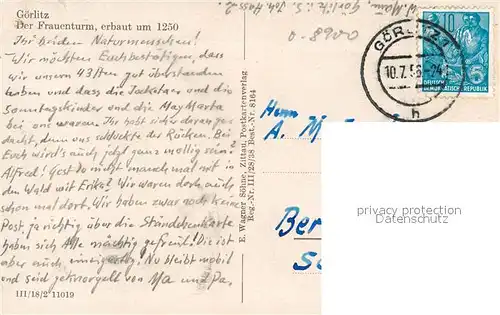 Görlitz
Der Frauenturm, erbaut um 1250
Ihr beiden Naturmenschen!
Wir möchten Euch bestätigen, dass
wir unsern 43sten gut überstanden
haben und dass die
Sonntagskinder und die May Marta
bei uns waren. Ihr habt sicher daran ge-
dacht, denn uns der Rücken. Bei
Euch wird's auch jetzt ganz mollig sein?
Alfred! Gest du nicht manchmal mit in
den Wald mit Erika? Wir waren doch auch
schon mal dort. Wir haben zwar noch keine
Post, ja richtig über die
haben sich Alle mächtig gefreut! Die ist
aber auch einzigartig! Nu bleibt mobil
und seid geknorgelt von Ma und Pa.
III/18/2 11019
E. Wagner Söhne, Zittau, Postkartenverlag
Reg.-Nr. III/28/28 Best.-Nr. 8164
Görlitz i. S. Joh.
0-8900
GÖRLITZ 1
10.7.56
h
10
5
DEUTSCHE
DEMOKRATISCHE REPUBLIK
Herrn
A. M
Ber
privacy protection
Datenschutz